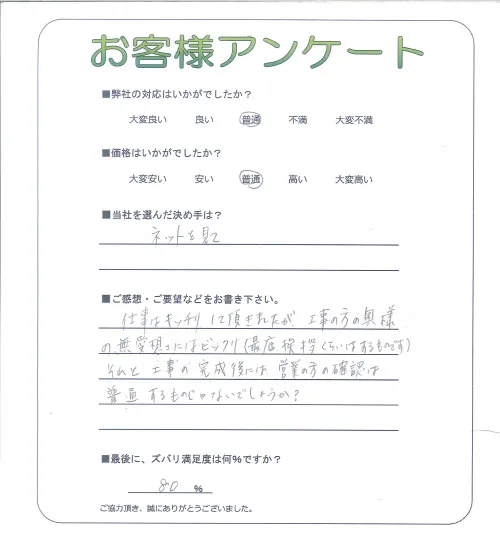 お客様アンケート
■弊社の対応はいかがでしたか？
大変良い 良い 普通 不満 大変不満
■価格はいかがでしたか？
大変安い 安い 普通 高い 大変高い
■当社を選んだ決め手は？
ネットを見て
■ご感想・ご要望などをお書き下さい。
仕事はキッチリして頂きましたが、工事の方の奥様
の無愛想さにはビックリ(最低挨拶くらいはするものです)
それと工事の完成後には営業の方の確認は
普通するものじゃないでしょうか？
■最後に、ズバリ満足度は何%ですか？
80 %
ご協力頂き、誠にありがとうございました。